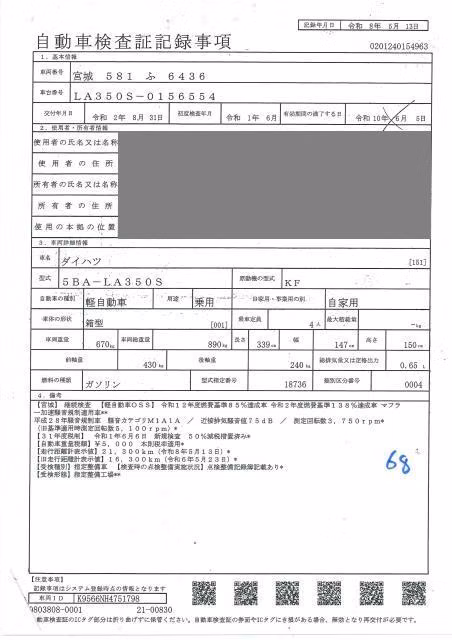 記録年月日 令和 8年 5月 13日
自動車検査証記録事項
0201240154963
1．基本情報
車両番号 宮城 581 ふ 6436
車台番号 LA350S－0156554
交付年月日 令和 2年 8月 31日 初度検査年月 令和 1年 6月 有効期間の満了する日 令和 10年 6月 5日
2．使用者・所有者情報
使用者の氏名又は名称
使用者の住所
所有者の氏名又は名称
所有者の住所
使用の本拠の位置
3．車両詳細情報
車名 ダイハツ [151]
型式 5BA－LA350S 原動機の型式 KF
自動車の種別 軽自動車 用途 乗用 自家用・事業用の別 自家用
車体の形状 箱型 [001] 乗車定員 4人 最大積載量 －kg
車両重量 670kg 車両総重量 890kg 長さ 339cm 幅 147cm 高さ 150cm
前軸重 430kg 後軸重 240kg 総排気量又は定格出力 0.65L
燃料の種類 ガソリン 型式指定番号 18736 類別区分番号 0004
4．備考
【宮城】 継続検査 【軽自動車OSS】 令和12年度燃費基準85％達成車 令和2年度燃費基準138％達成車 マフラ
ー加速騒音規制適用車**
平成28年騒音規制車 騒音カテゴリM1A1A ／ 近接排気騒音値75dB ／ 測定回転数3，750rpm*
（旧基準適用時測定回転数5，100rpm）*
【31年度税制】 令和1年6月6日 新規検査 50％減税措置済み*
【自動車重量税額】￥5，000 本則税非適用*
【走行距離計表示値】21，300km（令和8年5月13日）*
【旧走行距離計表示値】16，300km（令和6年5月23日）*
【受検種別】指定整備車 【検査時の点検整備実施状況】点検整備記録簿記載あり*
【受検形態】指定整備工場**
68
【注意事項】
記録事項はシステム登録時点の情報となります
車両ID K9566NH4751798
9803808-0001 21-00830
動車検査証のICタグ部分は折り曲げずに保管ください。自動車検査証の券面やICタグにき損がある場合、無効となり再交付が必要です。